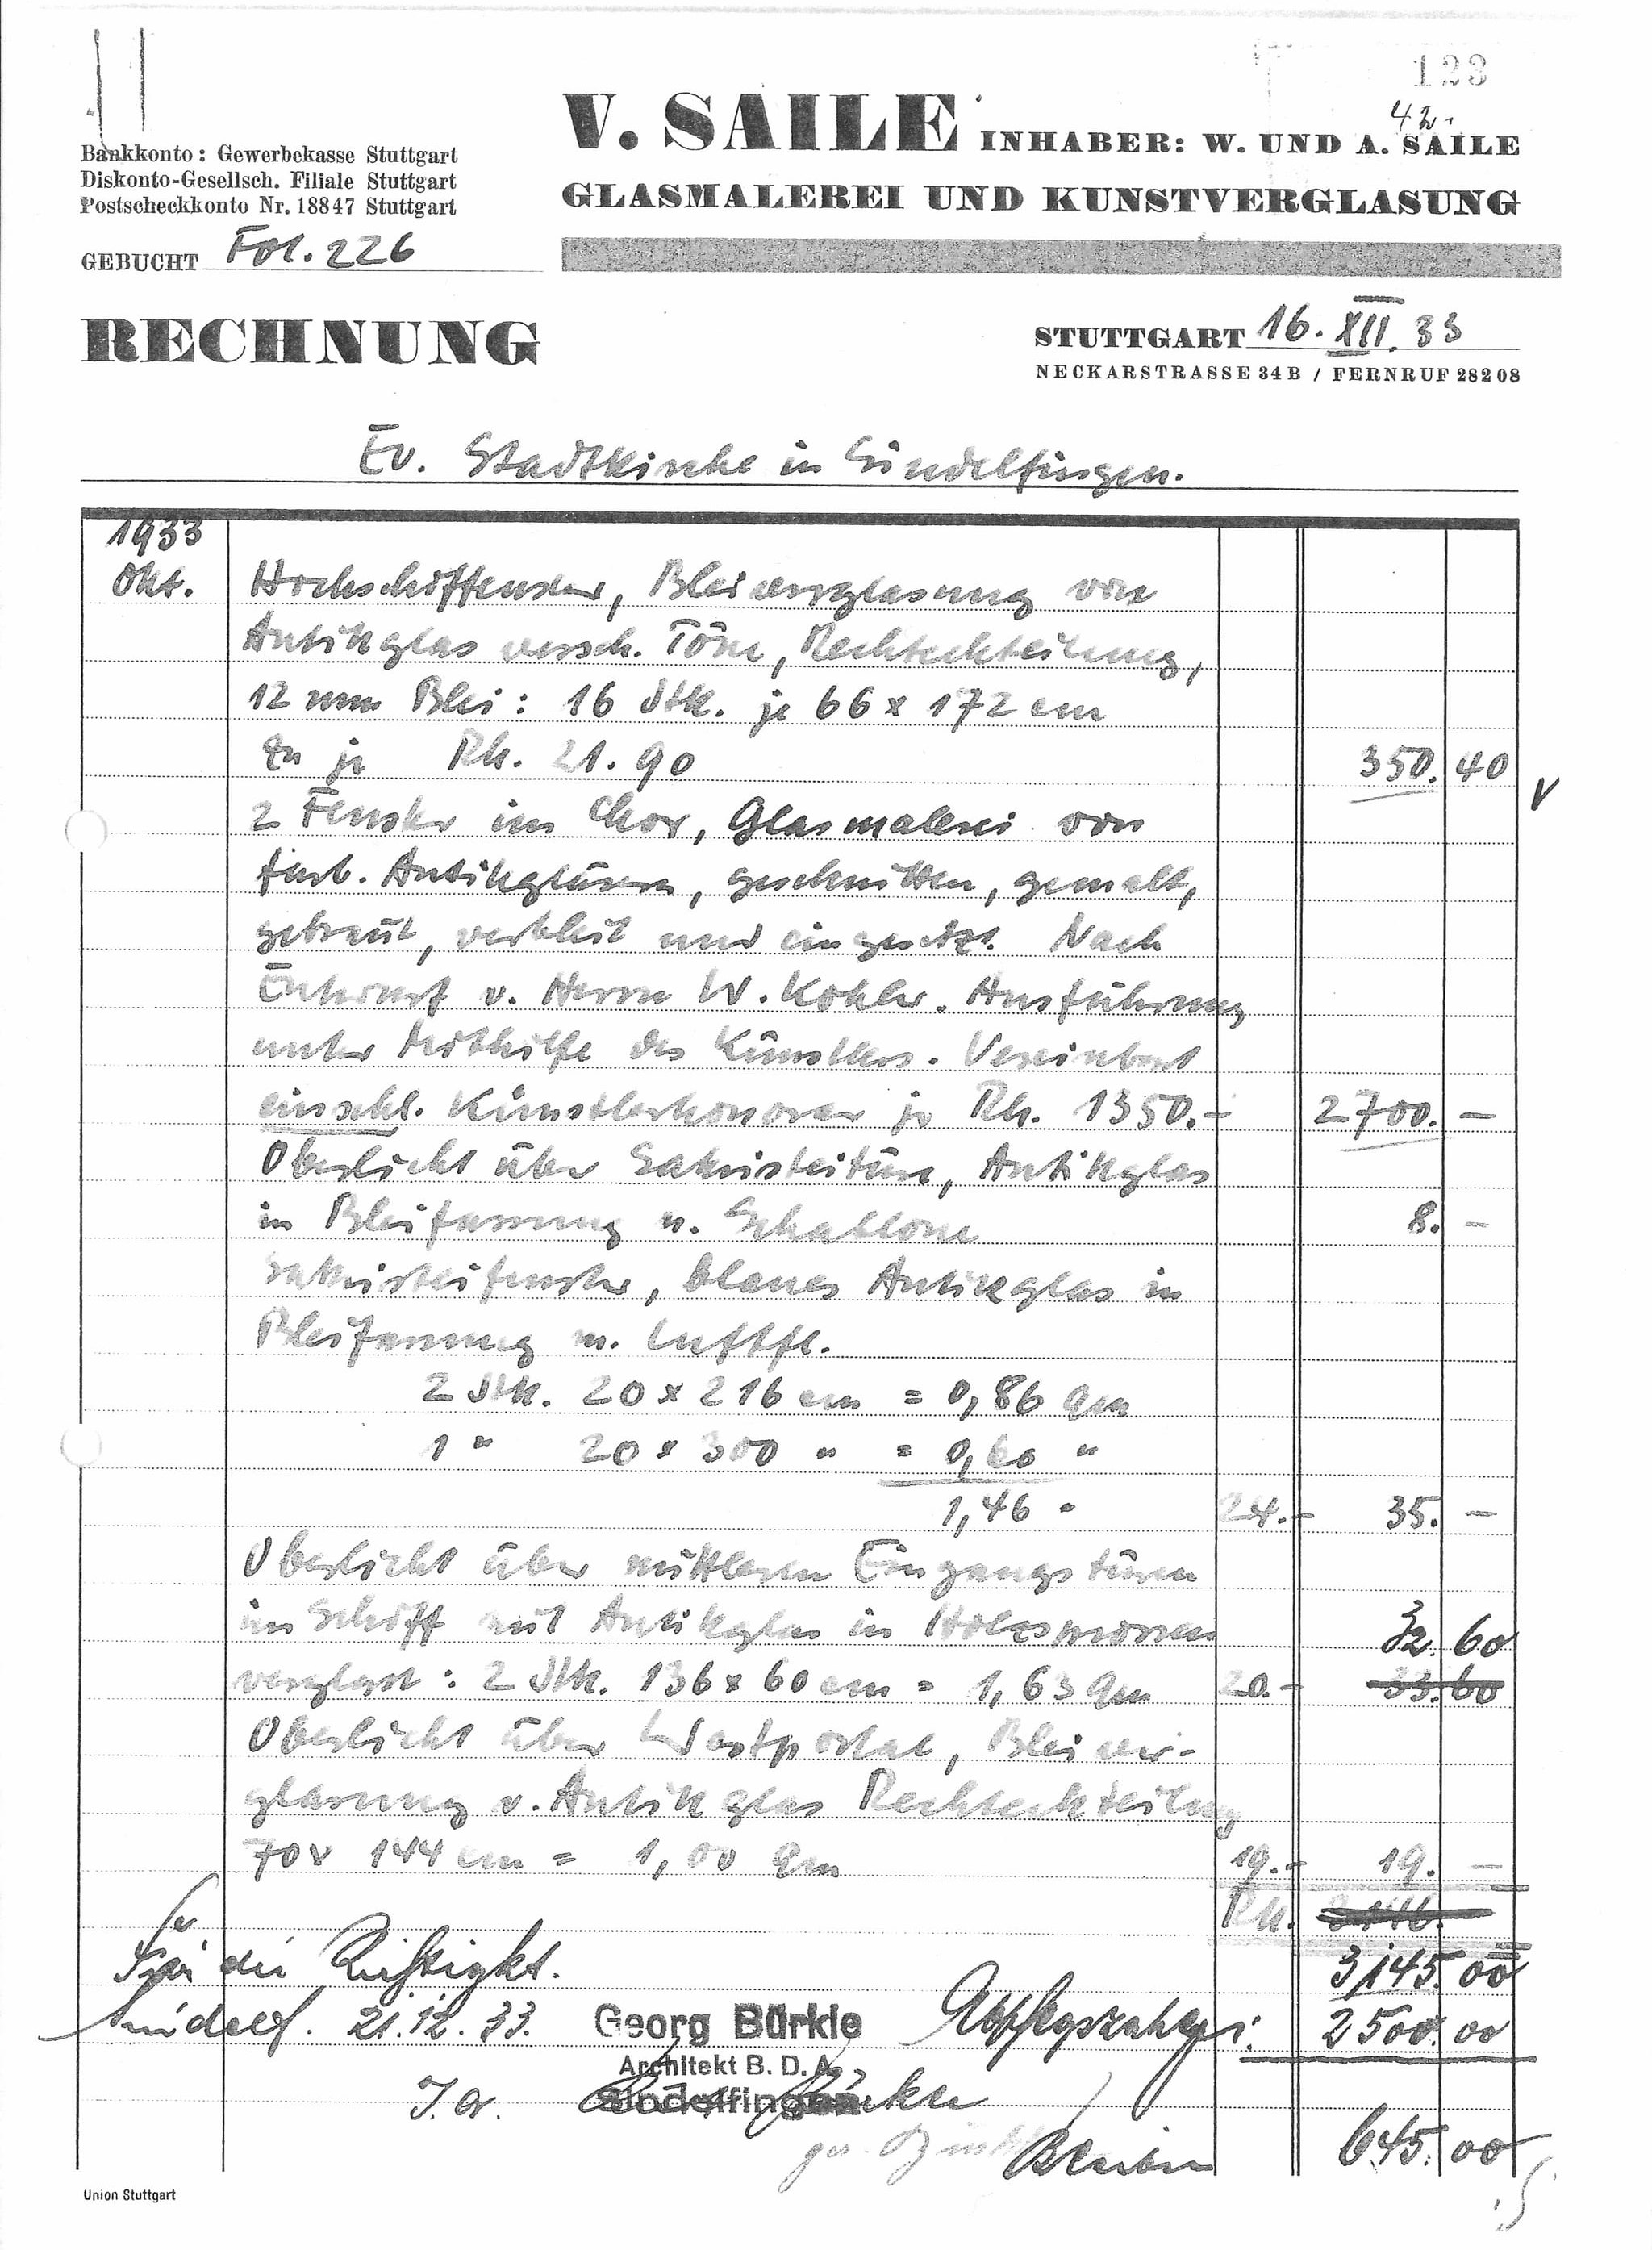 123
42.
Bankkonto: Gewerbekasse Stuttgart
Diskonto-Gesellsch. Filiale Stuttgart
Postscheckkonto Nr. 18847 Stuttgart
GEBUCHT Fol. 226
V. SAILE INHABER: W. UND A. SAILE
GLASMALEREI UND KUNSTVERGLASUNG
RECHNUNG
STUTTGART 16. XII. 33
NECKARSTRASSE 34B / FERNRUF 28208
Ev. Stadtkirche in Sindelfingen.
1933
Okt. Hochschiffenster, Bleiverglasung von
Antikglas versch. Töne, Rechteckteilung,
12 mm Blei: 16 Stk. je 66 x 172 cm
zu je Rk. 21.90 350. 40 V
2 Fenster im Chor, Glasmalerei von
farb. Antikgläsern, geschnitten, gemalt,
gebrannt, verbleit und eingesetzt. Nach
Entwurf v. Herrn W. Kohler. Ausführung
unter Mithilfe des Künstlers. Vereinbart
einschl. Künstlerhonorar je Rk. 1350.- 2700. —
Oberlicht über Sakristeitüre, Antikglas
in Bleifassung n. Schablone 8. —
Sakristeifenster, blaues Antikglas in
Bleifassung m. Luftfl.
2 Stk. 20 x 216 cm = 0,86 qm
1 " 20 x 300 " = 0,60 "
1,46 " 24.- 35. —
Oberlicht über mittleren Eingangstüren
im Schiff mit Antikglas in Holzsprossen 32. 60
verglast: 2 Stk. 136 x 60 cm = 1,63 qm 20.- 33. 60
Oberlicht über Westportal, Bleiver-
glasung v. Antikglas Rechteckteilung
70 x 144 cm = 1,00 qm 19.- 19. —
Rk. 3146.
3145. 00
Für die Richtigkt.
Sindelf. 21.12.33. Georg Bürkle Abschlagszahlung: 2500. 00
Architekt B. D. A.
J. A. Sindelfingen
645. 00
Union Stuttgart